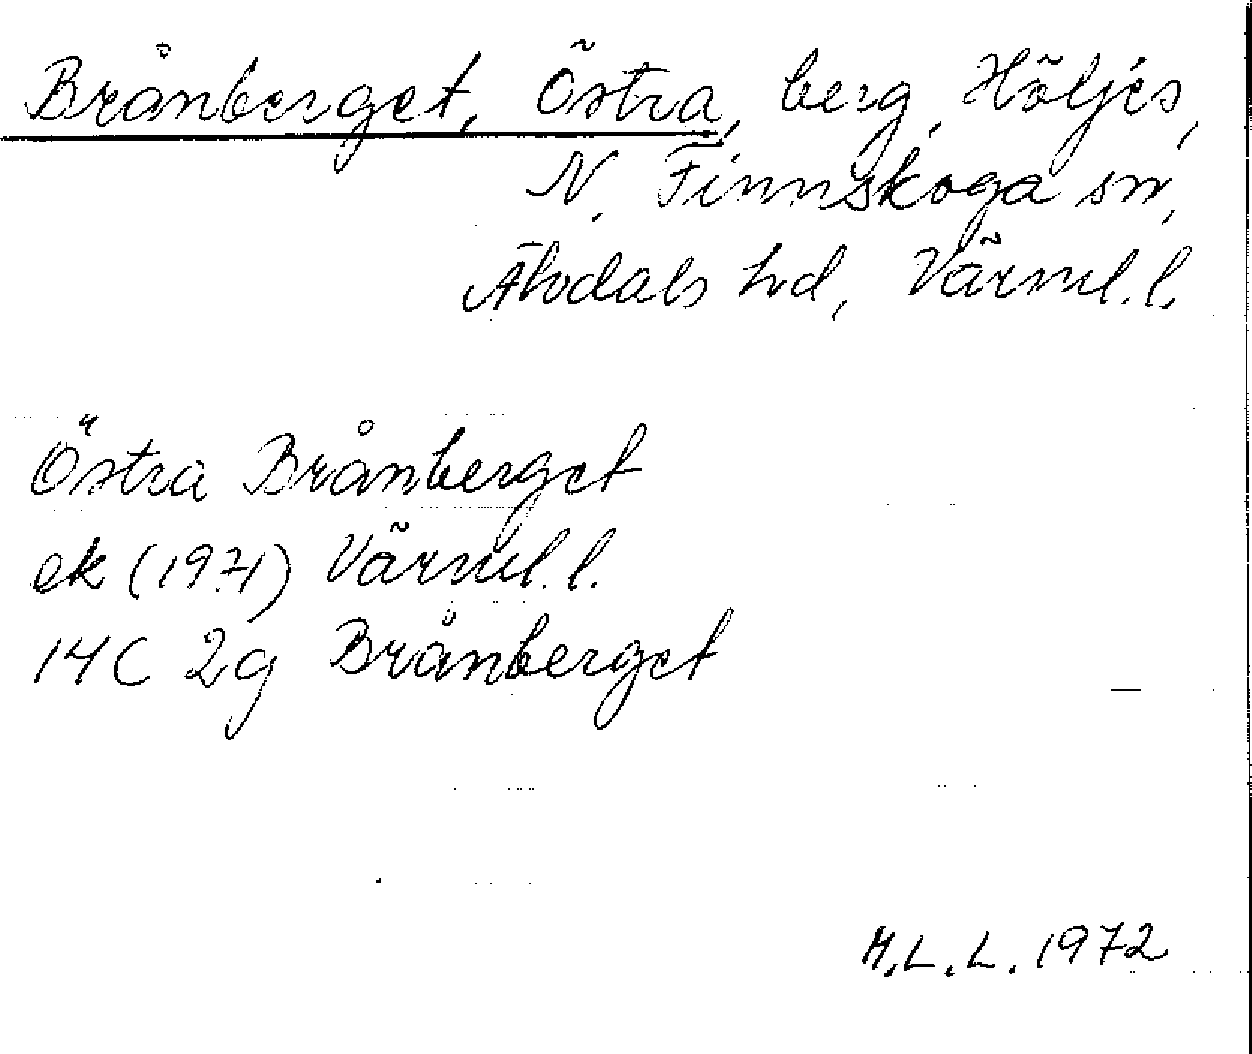 Brånberget, Östra, berg, Höljes,
N. Finnskoga sn,
Älvdals hd, Värml. l.
Östra Brånberget
ek (1971) Värml. l.
14C 2g Brånberget
M.L.L. 1972